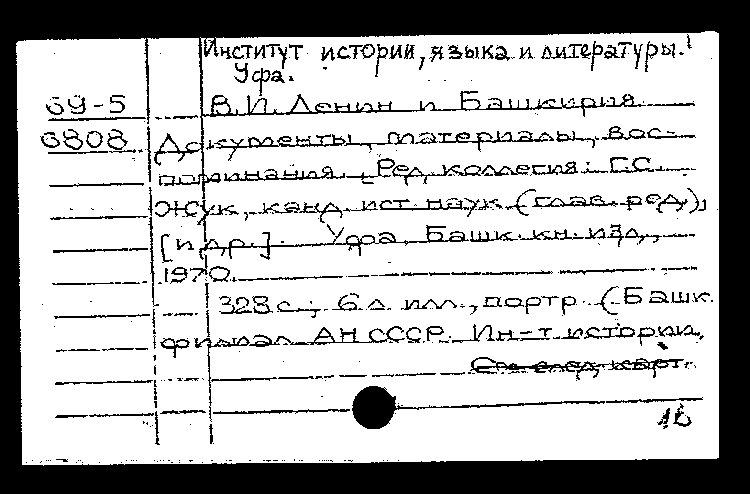 Институт истории, языка и литературы.
Уфа.
69-5 В.И. Ленин и Башкирия
6808 Документы, материалы, вос-
поминания. [Ред. коллегия: Г.С.
Жук, канд. ист. наук (глав. ред.),
[и др.]. Уфа, Башк. кн. изд.,
1970.
328 с.; 6 л. илл., портр. (Башк.
филиал АН СССР. Ин-т истории,
См. след. карт.